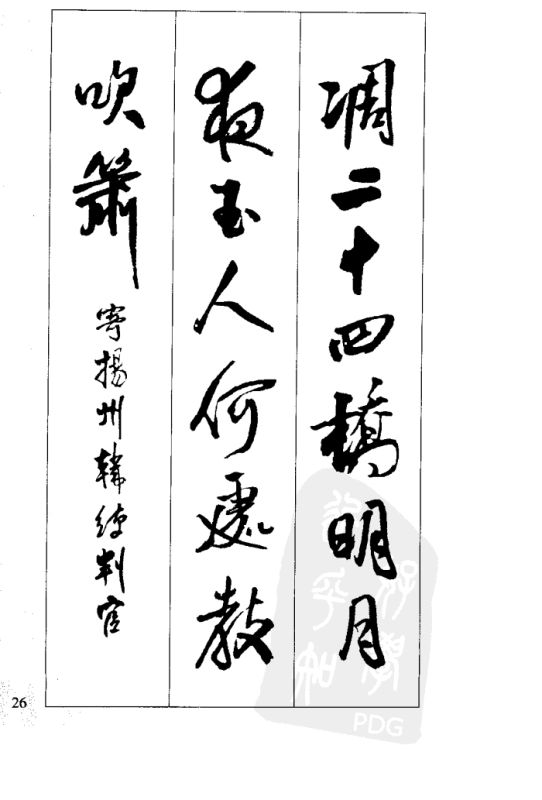 凋二十四橋明月
夜玉人何處教
吹簫 寄揚州韓綽判官
26
PDG